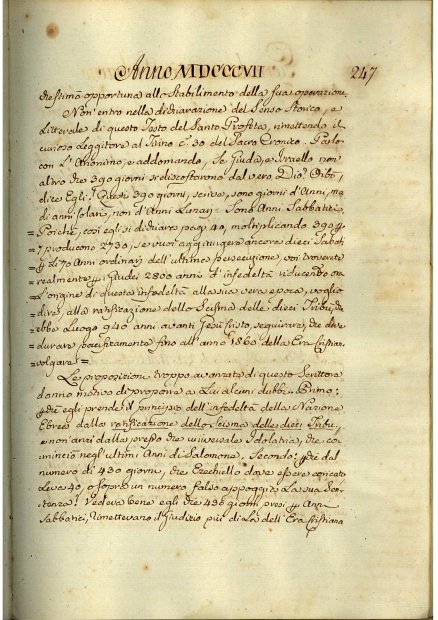 Anno MDCCCVII 247
che stimò opportuna allo stabilimento della sua operazione.
Non' entro nella dichiarazione del Senso Storico, e
Litterale di questo Testo del Santo Profeta, rimettendo il
curioso Leggitore al Tirino c. 30 del Sacro Cronico. Parlo
con L'Anonimo, e addomando, Se Giuda, e Israello non
altro che 390 giorni si discostarono dal vero Dio? Oibò,
dice Egli! Questi 390 giorni, scrive, sono giorni d'Anni, ma
di anni solari, non d'Anni Lunari. Sono Anni Sabbatici,
Poichè, così egli si dichiara pag: 40, moltiplicando 390
7 producono 2730, se vuon' aggiungere ancora dieci Sabati
di 70 Anni ordinarj dell'ultima persecuzione, voi troverete
realmente Giudei 2800 anni d'infedeltà riducendo
L'origine di questa infedeltà alla sua vera epoca, voglio
dire, alla ratificazione dello Scisma delle dieci Tribù, che
ebbe Luogo 940 anni avanti Gesù Cristo, seguirare, che dee
durare pacificamente fino all'anno 1860 della Era Cristian.
volgare.
Le proposizioni troppo avanzate di questo Scrittore
danno motivo di proporre a Lui alcuni dubbi. Primo:
chè egli prende il principio dell'infedeltà della Nazione
Ebrea dalla ratificazione dello Scisma delle dieci Tribù,
e non' anzi dalla presso che universale Idolatria, che co-
minciò negli ultimi Anni di Salomone. Secondo: chè dal
numero di 430 giorni, che Ezechiello dove essere coricato
Leva 40, e sopra un numero falso appoggia La sua Sen-
tenza? Vedeva bene egli che 430 giorni presi Anni
Sabbatici, rimettevano il Giudizio più di Là dell'Era Cristiana